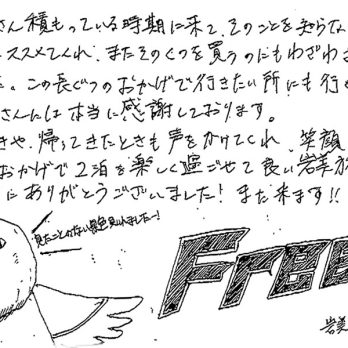 さん積もっている時期に来て、そのことを知らな
ススメてくれ、またそのくつを買うのにもわざわざ
。この長ぐつのおかげで行きたい所にも行
さんには本当に感謝しております。
きや、帰ってきたときも声をかけてくれ、笑顔
おかげで2泊を楽しく過ごせて良い岩美旅
にありがとうございました！また来ます!!
見たことのない景色見れましたー！
Free
岩美